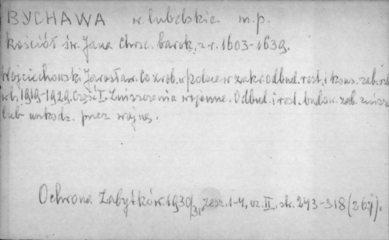 BYCHAWA w. lubelskie m.p.
kościół św. Jana Chrzc. barok, z r. 1603-1639.
Wojciechowski Jarosław. Co zrob. w Polsce w zakr. odbud. rest. i kons. zab.
1919-1929. Część I. Zniszczenia wojenne. Odbud. i rest. budow. zab. zniszcz.
lub uszkodz. przez wojnę.
Ochrona Zabytków. 1930/31, zesz. 1-4, cz. II. str. 243-318 (267).